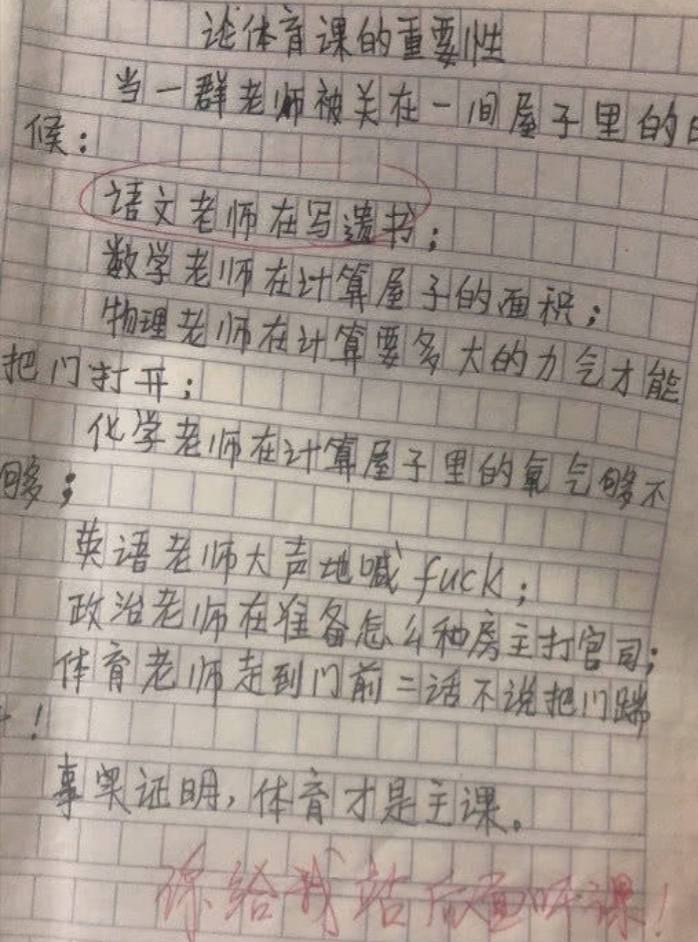 论体育课的重要性
当一群老师被关在一间屋子里的
候：
语文老师在写遗书；
数学老师在计算屋子的面积；
物理老师在计算要多大的力气才能
把门打开；
化学老师在计算屋子里的氧气够不
够；
英语老师大声地喊fuck；
政治老师在准备怎么和房主打官司；
体育老师走到门前二话不说把门踹
！
事实证明，体育才是主课。
你给我站后面听课！